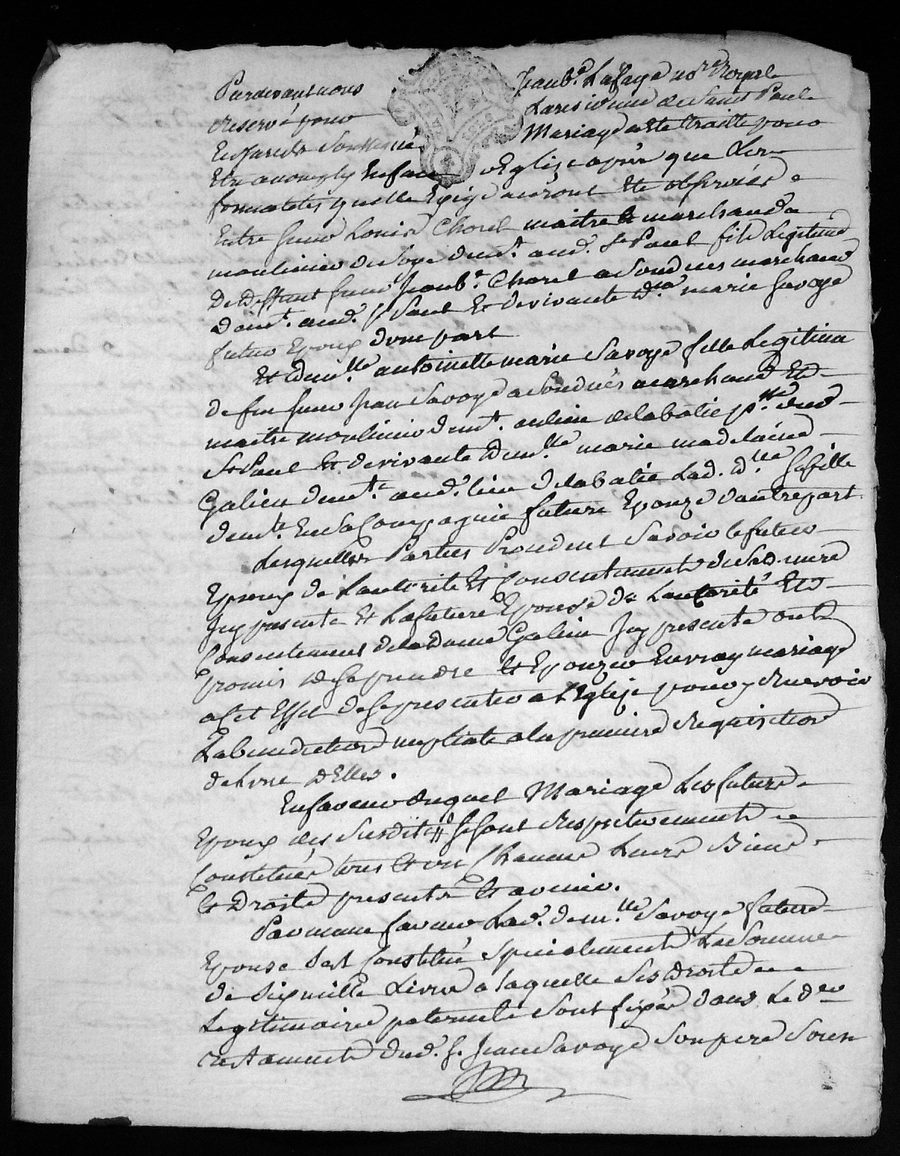 Pardevant nous Jean Bte. Lafaye nore. Royal
reservé pour La residence de Saint Paul
En Jarest soussigné Mariage a ete traitté pour
Etre accomply En face d'Eglise apres que Les
formalites quelle Exige auront Eté observées
Entre sieur Louis Chorel maitre & marchand
moulinier de soye demt. aud. St Paul fils Legitime
De deffunt sieur Jean Bt. Chorel a son deces marchand
demt. aud. St Paul Et de vivante dme. marie Savoye
futur Epoux d'une part
Et demlle antoinette marie Savoye fille Legitime
de feu sieur Jean Savoye a son deces marchand Et
maitre moulinier demt. au lieu de labatie psse dud.
St Paul Et de vivante demlle marie madelaine
Galien demte. aud. lieu de labatie Lad. dlle sa fille
demte. En sa Compagnie future Epouze d'autre part
Lesquelles Parties Procedent savoir le futur
Epoux de L'autorité Et Consentement de sad. mere
Icy presente Et La future Epouse de L'autorité Et
Consentement de lad. dame Galien Icy presente ont
Promis de se prendre Et Epouzer En vray mariage
a Cet Effet de se presenter a L'Eglize pour y recevoir
La benediction nuptiale a la premiere requisition
de L'une d'Elles.
En faveur duquel Mariage Les futurs
Epoux des susdittes se sont respectivement
Constitués tous Et un Chacuns Leurs Biens
Et Droits presents Et avenir.
Par meme faveur Lad. demlle Savoye future
Epouse s'est Constitué specialement La Somme
de dix mille Livres a laquelle ses droits
Legitimaires paternels sont fixés dans Le
testament dud. s. Jean Savoye son pere sous